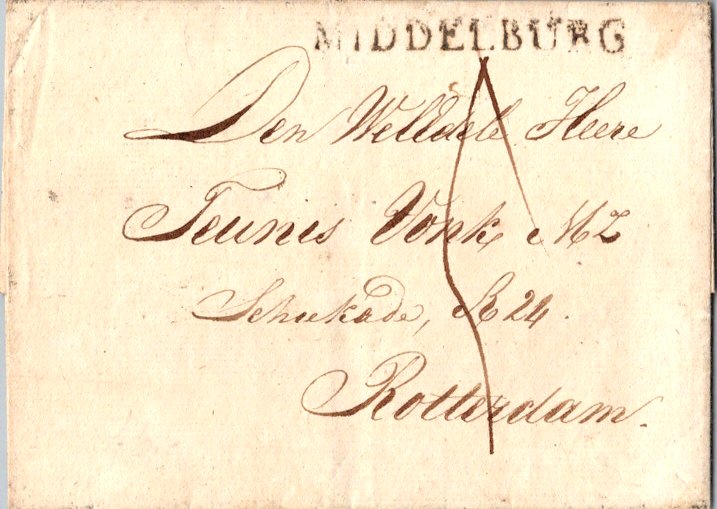 MIDDELBURG
Den WelEdele Heere
Teunis Vonk, MZ
Schiekade, R 24.
Rotterdam.